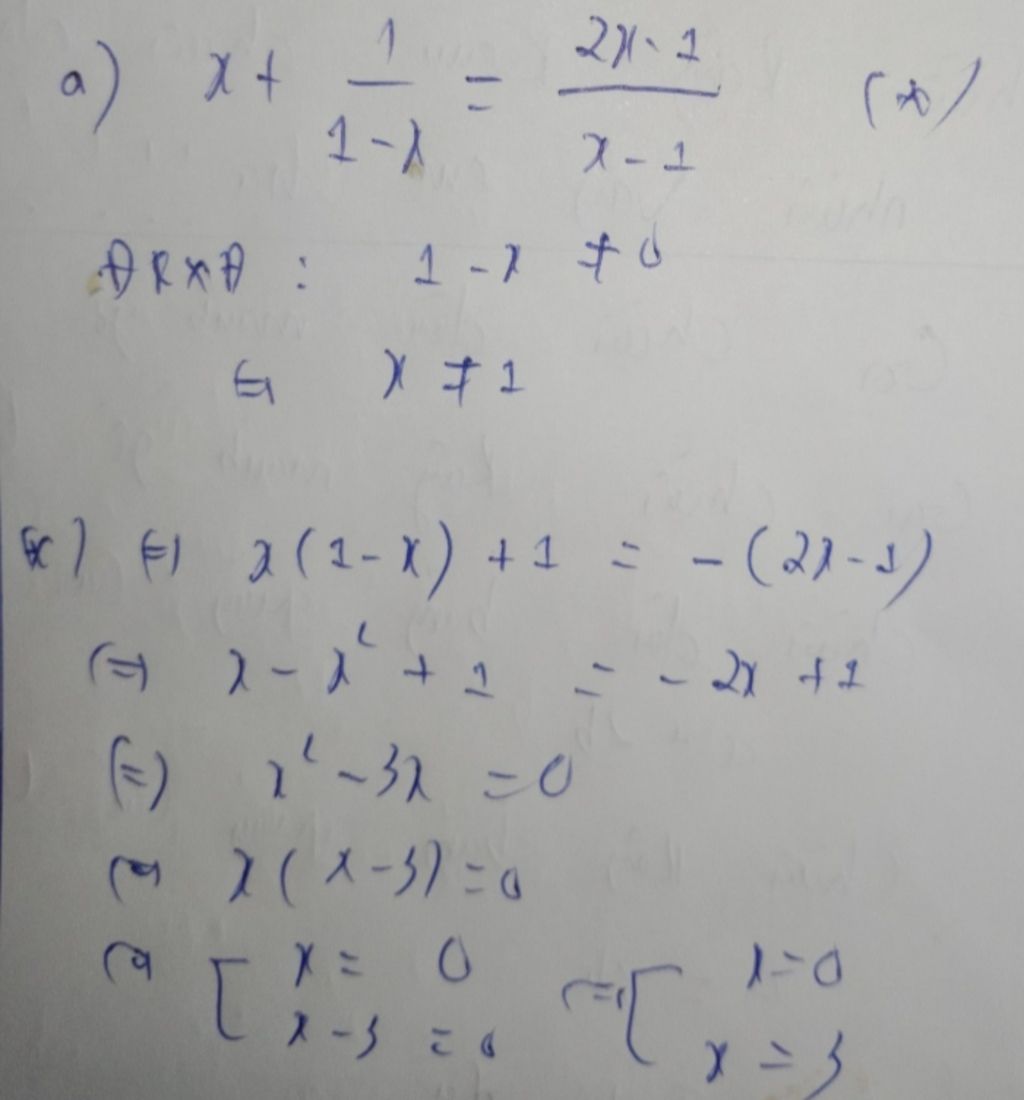 a) x + 1/(1-x) = (2x-1)/(x-1) (*)
ĐKXĐ : 1 - x ≠ 0
⇔ x ≠ 1
(*) ⇔ x(1-x) + 1 = -(2x-1)
⇔ x - x² + 1 = - 2x + 1
⇔ x² - 3x = 0
⇔ x(x-3) = 0
⇔ [ x = 0 ⇔ [ x = 0
x - 3 = 0 x = 3